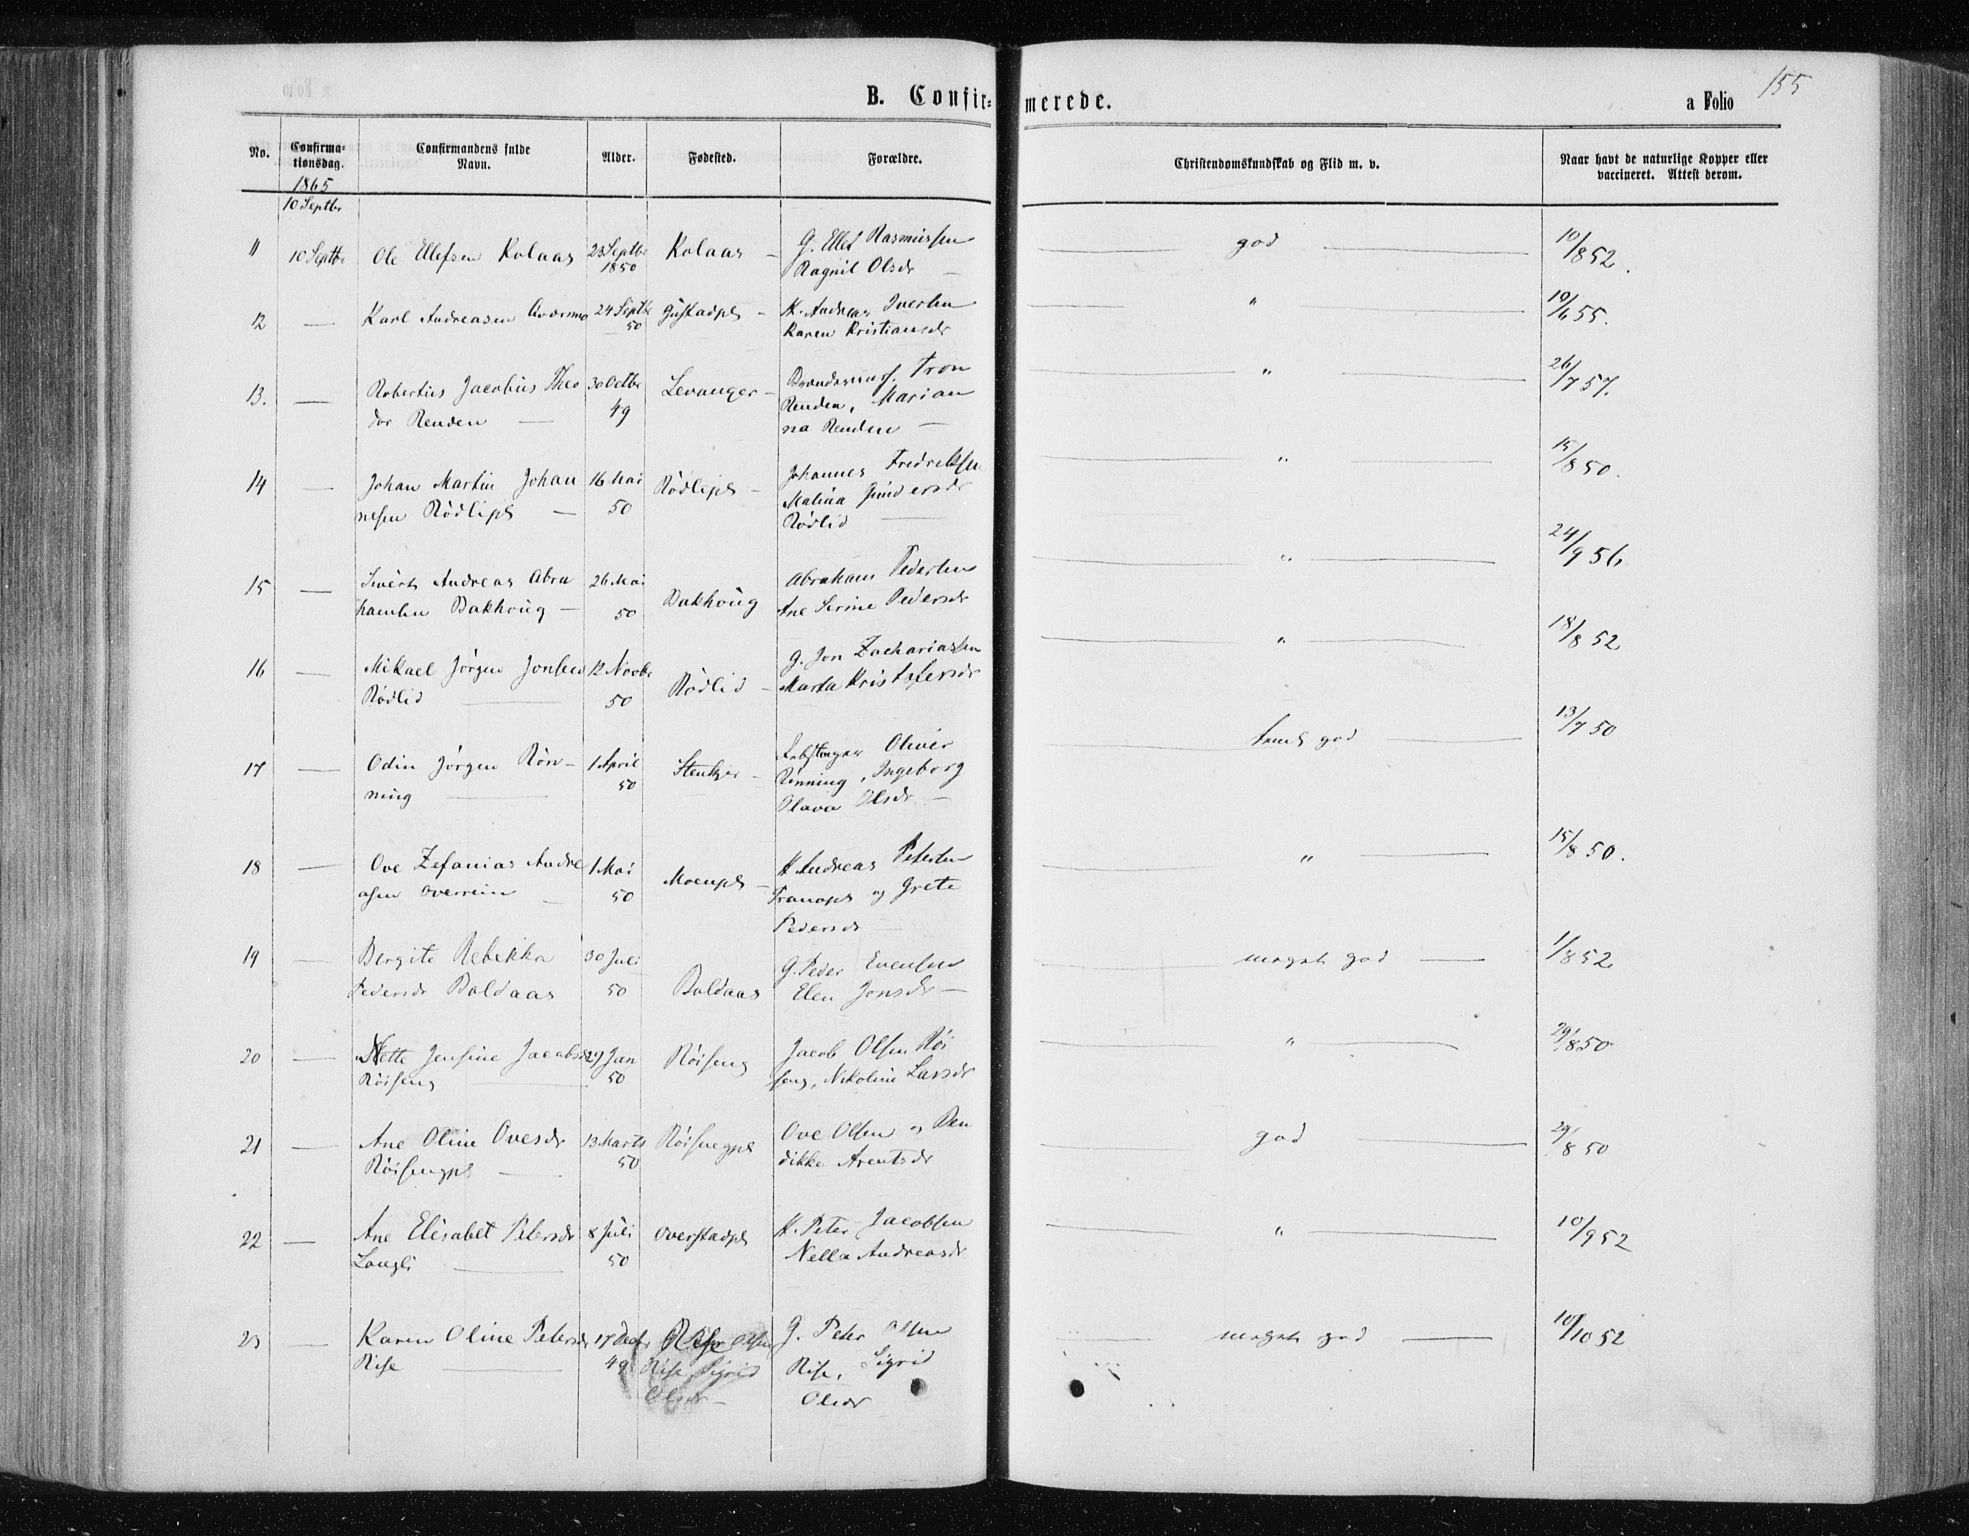 155
B. Confirmerede.
a Folio
No.
Confirmationsdag.
Confirmandens fulde Navn.
Alder.
Fødested.
Forældre.
Christendomskundskab og Flid m. v.
Naar havt de naturlige Kopper eller vaccineret. Attest derom.
1865
10 Septbr
11 10 Septbr Ole Ellefsen Kolaas 23 Septbr 1850 Kolaas – G. Ellef Rasmussen god 10/8 52.
Ragnil Olsdr –
12 — Karl Andreasen 24 Septbr 50 Gustadpl – H. Andreas Iversen " 10/6 55.
Karen Kristiansdr
13. — Robertus Jacobus Theo 30 Octbr 49 Levanger – Tron " 26/7 57.
dor Renden — Renden, Marian
na Renden —
14 — Johan Martin Johan 16 Mai 50 Rödlipl – Johannes Fredriksen " 15/8 50.
nesen Rödlipl — Malina Gundersdr
Rödlid —
15 — Sivert Andreas Abra 26 Mai 50 Bakhoug Abraham Pedersen " 24/9 56
hamsen Bakhoug – Ane Serine Pedersdr
16 — Mikael Jörgen Jonsen 12 Novbr 50 Rödlid – G. Jon Zachariassen " 18/8 52
Rödlid — Marta Kristofersdr
17 — Odin Jörgen Rön- 1 April 50 Stenkjer – Oliver god 13/7 50
ning — Rönning, Ingeborg
Olava Olsdr –
18 — Ove Zefanias Andre 1 Mai 50 Moenpl – H. Andreas Petersen " 15/8 50.
asen Overrein — Tranapl og Grete
Pedersdr —
19 — Bergite Rebekka 30 Juli 50 Boldaas G. Peder Evensen meget god — 1/8 52
Pedersdr Boldaas Elen Jonsdr –
20 — Nette Jensine Jacobsdr 29 Jan 50 Röiseng Jacob Olsen Röi " 29/8 50
Röiseng — seng, Nikoline Larsdr
21 — Ane Oline Ovesdr 13 Marts 50 Röisengpl Ove Olsen og Ben god 29/8 50
Röisengpl — dikke Arentsdr
22 — Ane Elisabet Petersdr 8 Juli 50 Overstadpl H. Peter Jacobsen " 10/9 52
Langli — Nella Andreasdr
23 — Karen Oline Petersdr 17 Decbr 49 Rise Olsen G. Peter Olsen meget god — 10/10 52
Rise — Rise, Sigrid Rise, Sigrid
Olsdr – Olsdr